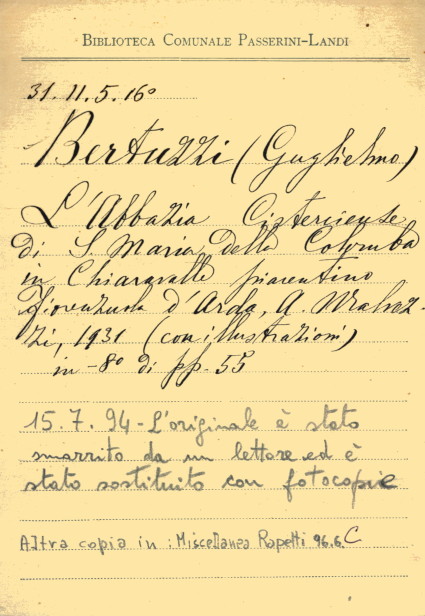 BIBLIOTECA COMUNALE PASSERINI-LANDI
31. 11. 5. 16º
Bertuzzi (Guglielmo)
L'Abbazia Cistercense
di S. Maria della Colomba
in Chiaravalle piacentino
Fiorenzuola d'Arda, A. Malvez-
zi, 1931 (con illustrazioni)
in-8º di pp. 55
15.7.94 - L'originale è stato
smarrito da un lettore ed è
stato sostituito con fotocopie
Altra copia in: Miscellanea Rapetti 96.6.C